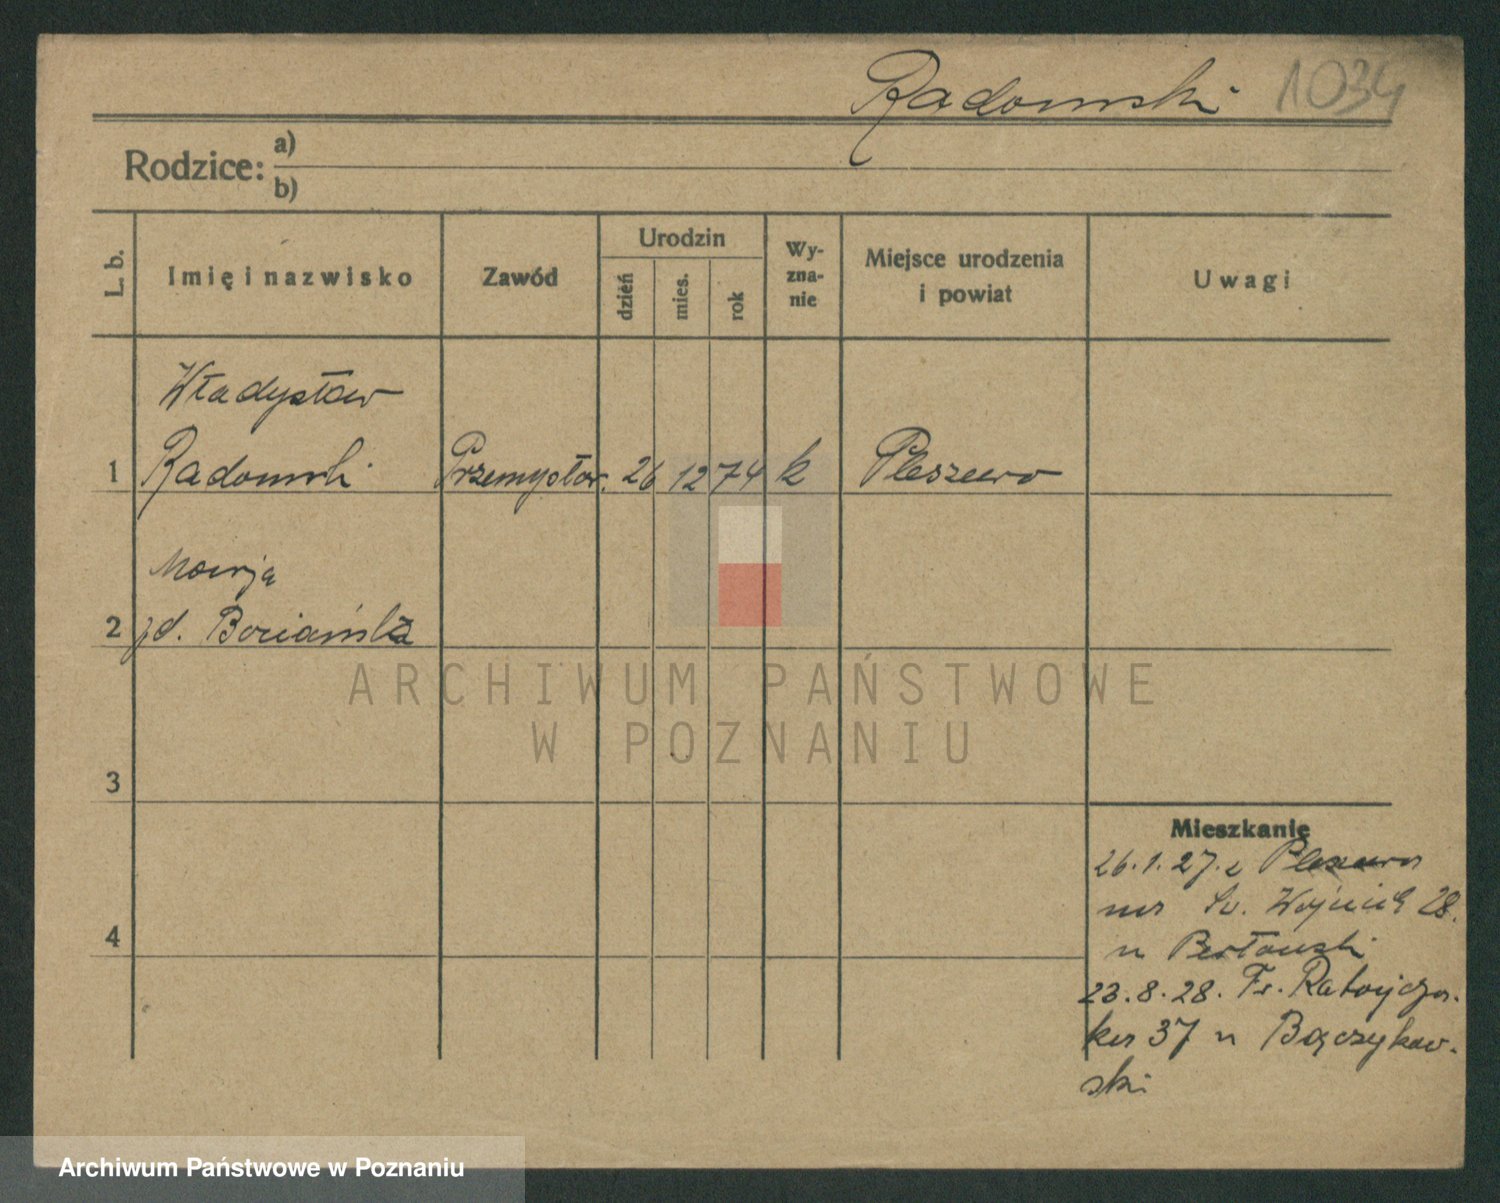 Radomski 1034
Rodzice: a)
b)
L. b.
Imię i nazwisko
Zawód
Urodzin
dzień
mies.
rok
Wy-
zna-
nie
Miejsce urodzenia
i powiat
Uwagi
Władysław
1 Radomski Przemysłow. 26 12 74 k Pleszewo
Marja
2 zd. Boziańska
3
4
ARCHIWUM PAŃSTWOWE
W POZNANIU
Mieszkanie
26.1.27. z Pleszewa
na Św. Wojciech 28.
u
23.8.28. Fr. Ratajcza-
ka 37 u Bączykow-
ski
Archiwum Państwowe w Poznaniu